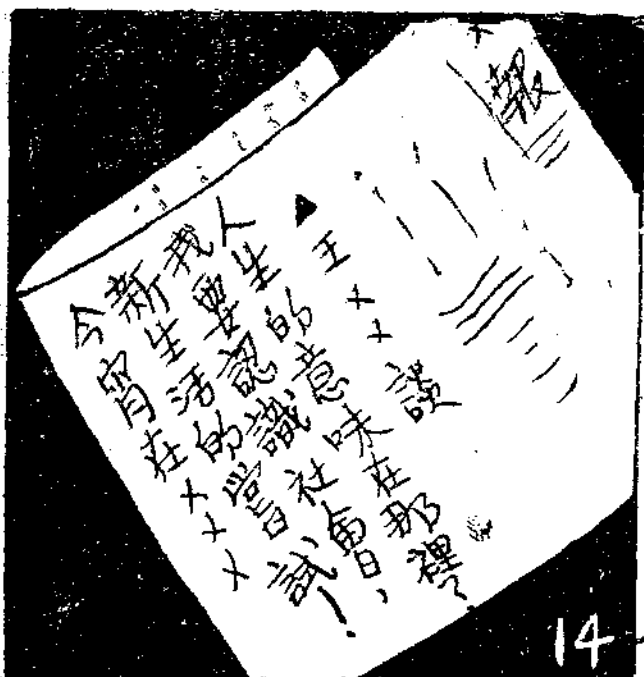 報
▲王××談
人生的意味在那裡?
我要認識社會,
新生活的嘗試!
今宵在×××
14